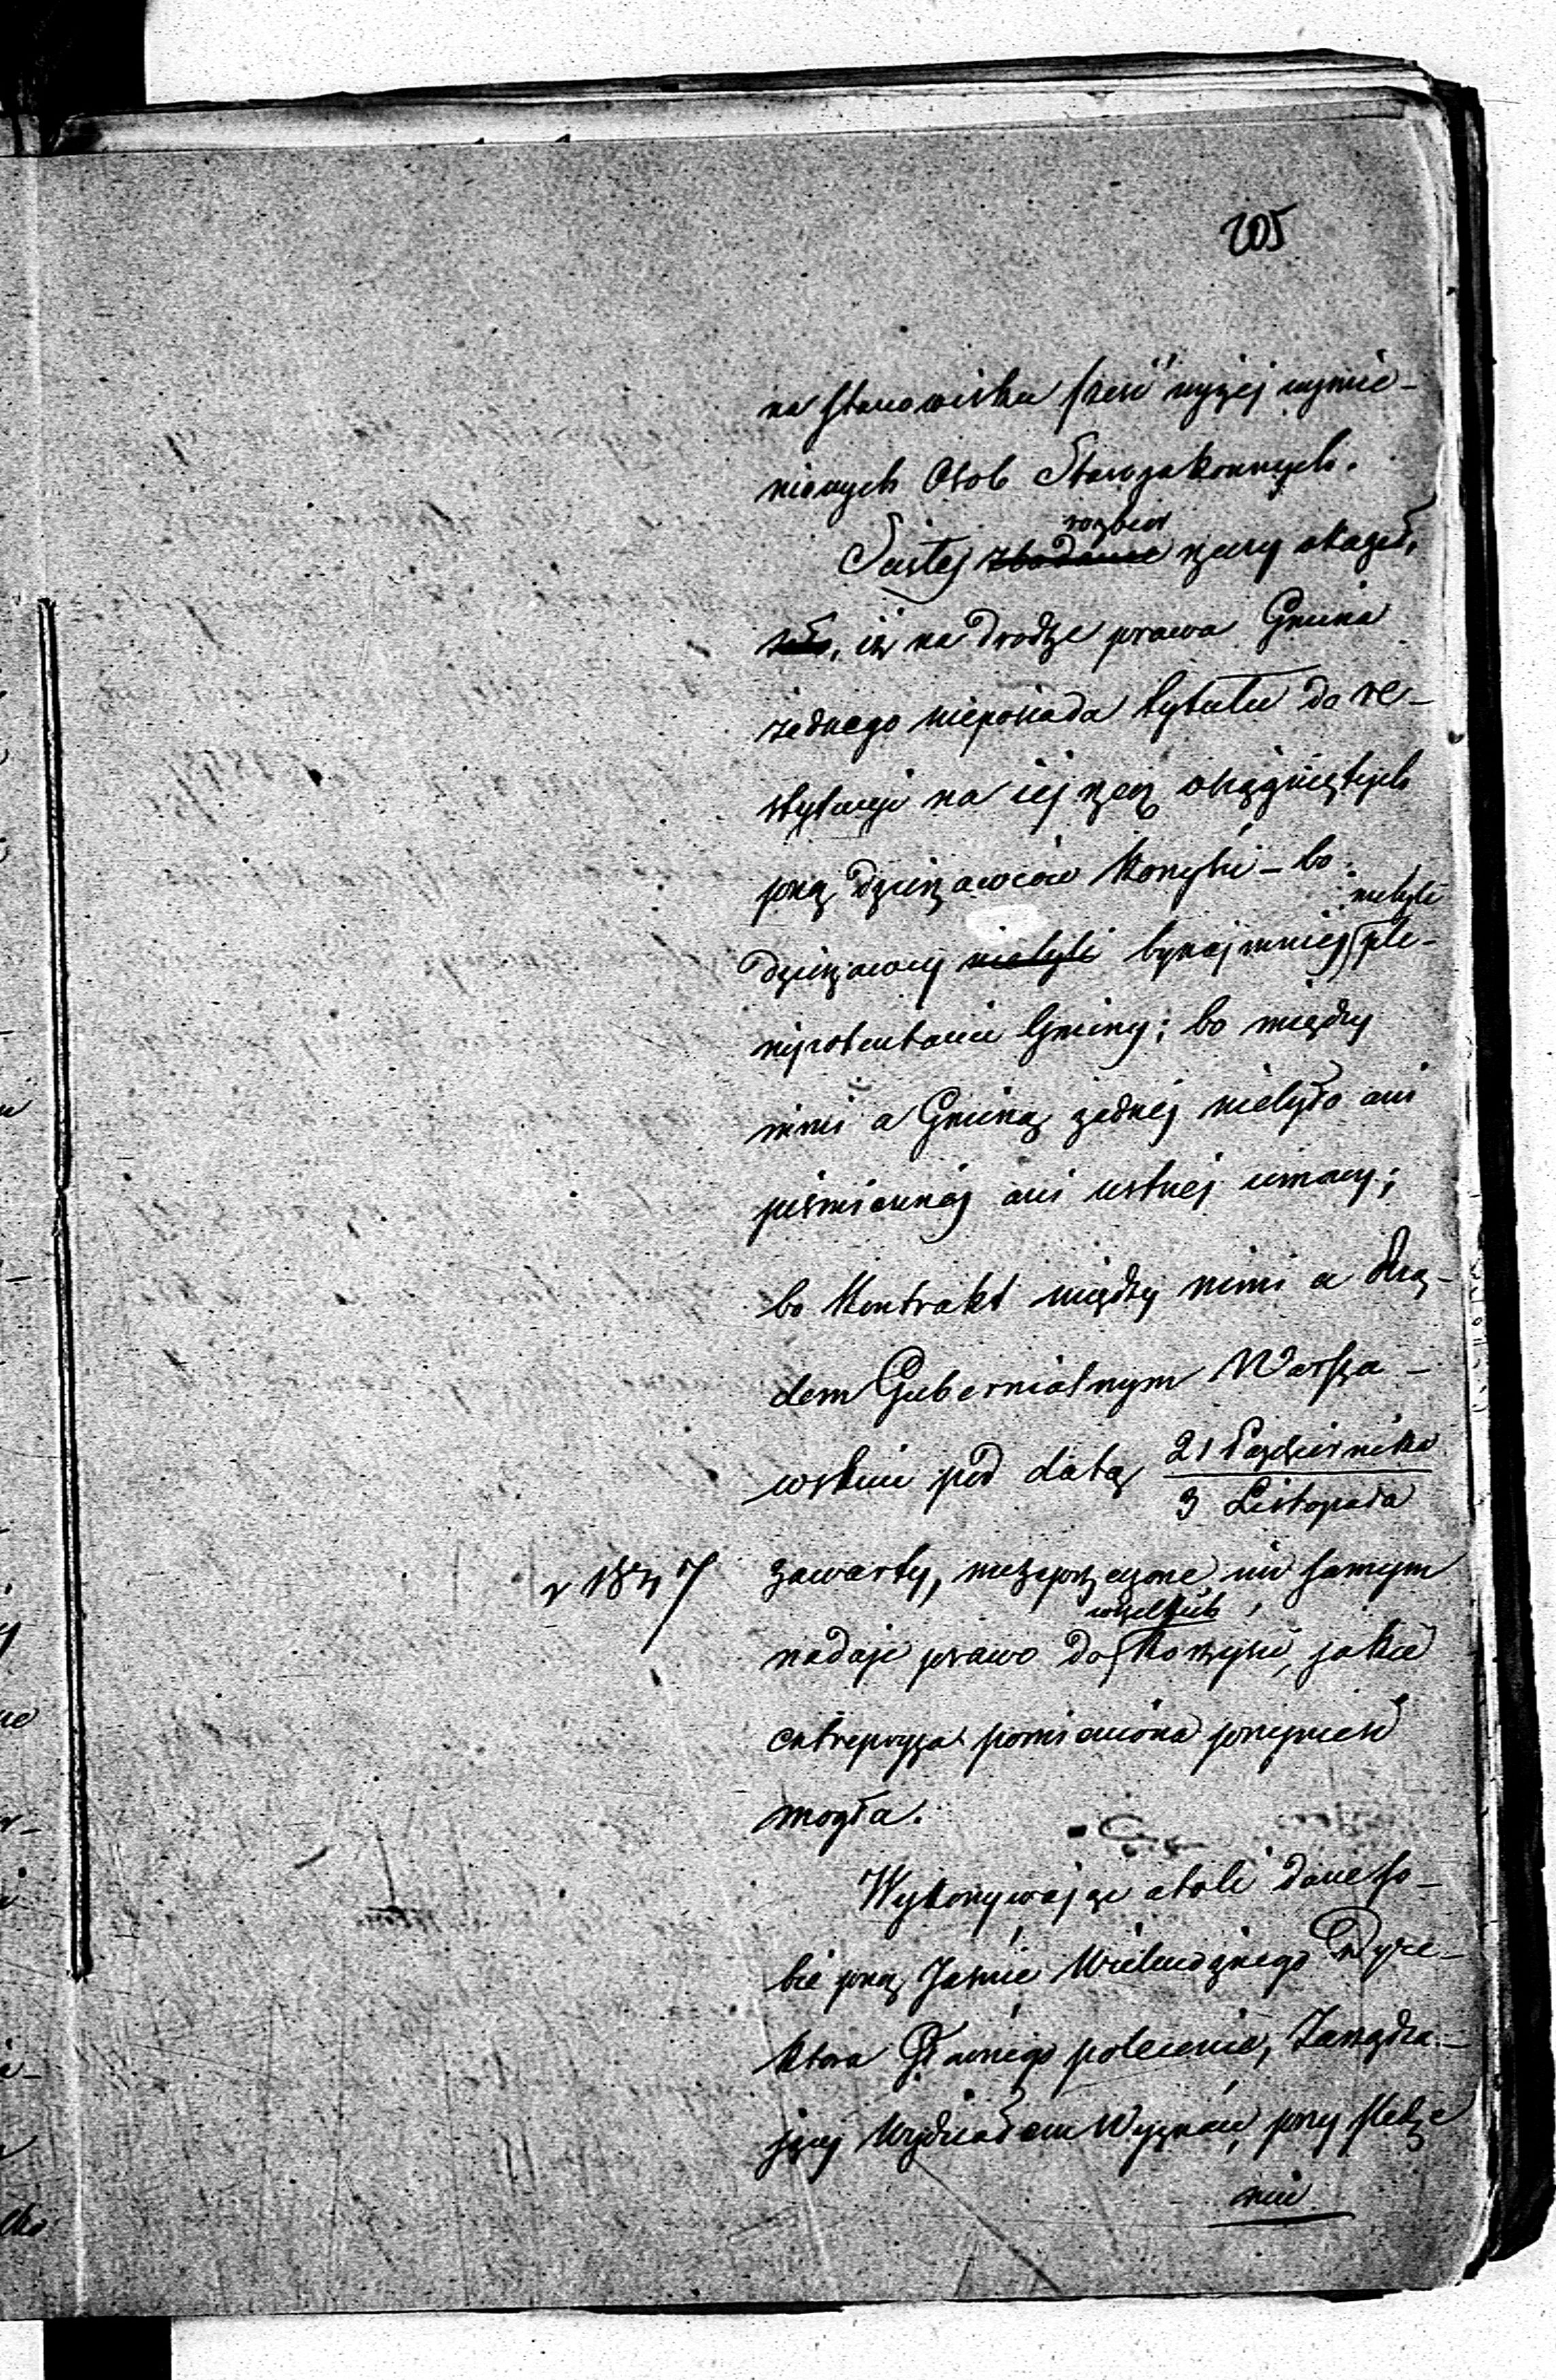 205
na stanowisku sześć wyżej wymie-
nionych Osob Starozakonnych.
rozbior
Scisłej zbadanie rzeczy okazał,
zało, iż na drodze prawa Gmina
żadnego nieposiada tytułu do re-
stytucji na jej rzecz osiągniętych
przez dzierżawców korzyści – bo
niebyli
dzierżawcy niebyli bynajmniej ple-
nipotentami Gminy; bo między
nimi a Gminą żadnej niebyło ani
piśmiennej ani ustnej umowy;
bo Kontrakt między nimi a Rzą-
dem Gubernialnym Warsza-
wskim pod datą 21 Października
3 Listopada
r 1847 zawarty, niezaprzeczone im samym
wszelkich
nadaje prawo do korzyści, jakie
entrepryza pomieniona przynieść
mogła.
Wykonywając atoli dane so-
bie przez Jaśnie Wielmożnego Dyre-
ktora Głównego polecenie, Zarządza-
jący Wydziałem Wyznań, przy śledze
niu